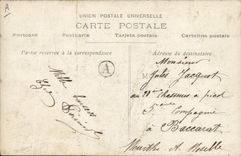 A
UNION POSTALE UNIVERSELLE
CARTE POSTALE
Postcard
Postkarte
Tarjeta postal
Cartolina postale
Partie réservée à la correspondance
Adresse du destinataire
A
Mille
Monsieur
Jules Jacquot
au Chasseurs à pied
5ème Compagnie
à Baccarat
Meurthe et Moselle